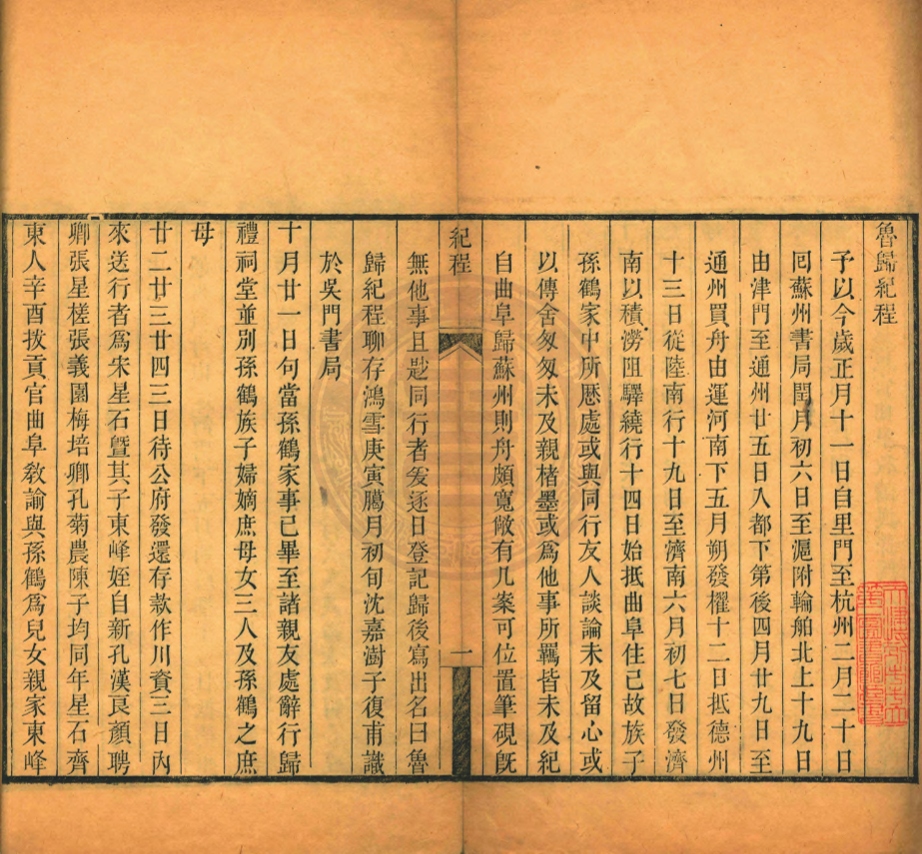 魯歸紀程
予以今歲正月十一日自里門至杭州二月二十日
囘蘇州書局閏月初六日至滬附輪舶北上十九日
由津門至通州廿五日入都下第後四月廿九日至
通州買舟由運河南下五月朔發櫂十二日抵德州
十三日從陸南行十九日至濟南六月初七日發濟
南以積澇阻驛繞行十四日始抵曲阜住已故族子
孫鶴家中所歷處或與同行友人談論未及留心或
以傳舍匆匆未及親楮墨或爲他事所羈皆未及紀
自曲阜歸蘇州則舟頗寬敞有几案可位置筆硯旣
紀程
一
無他事且尠同行者爰逐日登記歸後寫出名曰魯
歸紀程聊存鴻雪庚寅臈月初旬沈嘉澍子復甫識
於吳門書局
十月廿一日句當孫鶴家事已畢至諸親友處辭行歸
禮祠堂並別孫鶴族子婦嫡庶母女三人及孫鶴之庶
母
廿二廿三廿四三日待公府發還存款作川資三日內
來送行者爲宋星石曁其子東峰姪自新孔漢艮顏聘
卿張星槎張義園梅培卿孔菊農陳子均同年星石齊
東人辛酉拔貢官曲阜敎諭與孫鶴爲兒女親家東峰